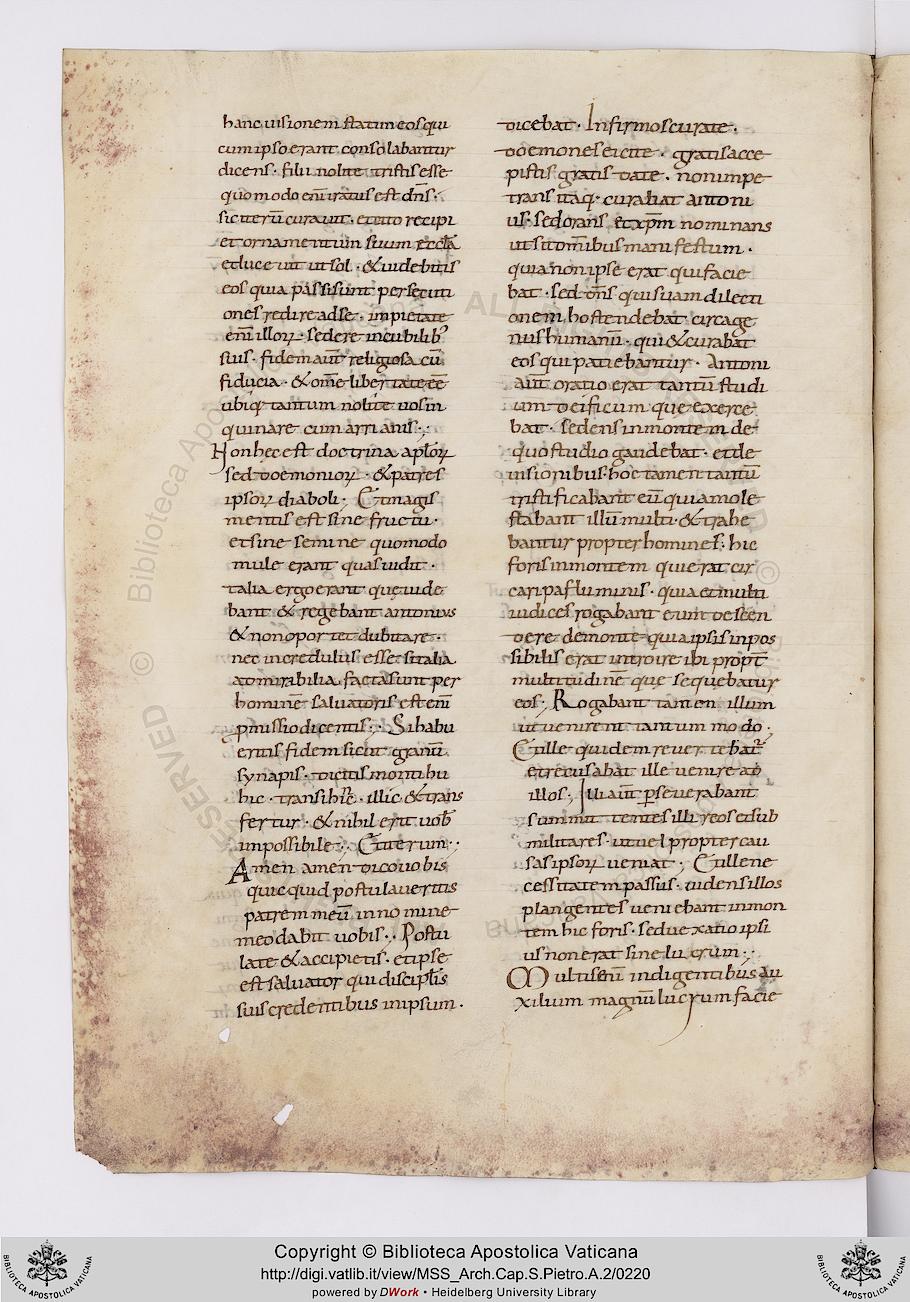 hanc uisionem statim eos qui
cum ipso erant consolabantur
dicens · filii nolite tristis esse
quomodo eni͞ iratus est dn͞s ·
sic iteru͞ curauit · et ito recipi
et ornamentum suum eccl͞a
et luceuit ut sol · & uidebitis
eos quia passi sunt persecuti
ones redire ad se · impietate
eni͞ illoꝝ · sedere in cubilib᾽
suis · fidem aut͞ religiosa cu͞
fiducia · & om͞e libertate e͞e
ubiq; tantum nolite uos in
quinare cum arrianis ·,·
Non hec est doctrina aplo͞ꝝ
sed doemonioꝝ · & patres
ipsoꝝ diaboli · Et magis
mentis est sine fructu ·
et sine semine quomodo
mule erant quas uidit ·
talia ergo erant que uide
bant & regebant antonius
& non oportet dubitare ·
nec incredulus esse si talia
admirabilia facta sunt per
homine͞ saluatoris est eni͞
ꝓmissio dicentis ·,· Si habu
eritis fidem sicut granu͞
synapis · dicitis monti hu
hic · transibi͞re · illic & trans
fertur · & nihil erit uob͞
impossibile ·,· Et iterum ·,·
Amen amen dico uobis
quicquid postulaueritis
patrem meu͞ in nomine
meo dabit uobis ·,· Postu
late & accipietis · et ipse
est saluator qui discipl͞is
suis credentibus in ipsum ·
dicebat · Infirmos curate ·
doemones eicite · gratis acce
pistis gratis date · non impe
trans itaq; · curabat antoni
us · sed orans et xp͞m nominans
ut sit om͞ibus manifestum ·
quia non ipse erat qui facie
bat · sed dn͞s qui suam dilecti
onem hostendebat circa ge
nus humanu͞ · qui & curabat
eos qui patiebantur · Antoni
aut͞ oratio erat tantu͞ studi
um deificum que exerce
bat · sedens in montem de
quo studio gaudebat · et de
uisionibus · hoc tamen tantu͞
tristificabant eu͞ quia mole
stabant illu͞ multi · & trahe
bantur propter homines · hic
foris in montem qui erat cir
ca ripa fluminis · quia et multi
iudices rogabant eum descen
dere demonte quia ipsis inpos
sibilis erat introire ibi propt͞
multitudine͞ que sequebatur
eos · Rogabant tamen illum
ut uenirent tantum modo ·
Et ille quidem reuertebat͞
et recusabat ille uenire ad
illos · Illi aut͞ ꝑseuerabant
summittentes illi reos et sub
militares · ut uel propter cau
sas ipsoꝝ ueniat ·, Et ille ne
cessitatem passus · uidens illos
plangentes ueniebant in mon
tem hic foris · sed uexatio ipsi
us non erat sine lucrum ·,·
Multis eni͞ indigentibus au
xilium magnu͞ lucrum facie
Copyright © Biblioteca Apostolica Vaticana
http://digi.vatlib.it/view/MSS_Arch.Cap.S.Pietro.A.2/0220
powered by DWork • Heidelberg University Library
BIBLIOTECA APOSTOLICA VATICANA
BIBLIOTECA APOSTOLICA VATICANA